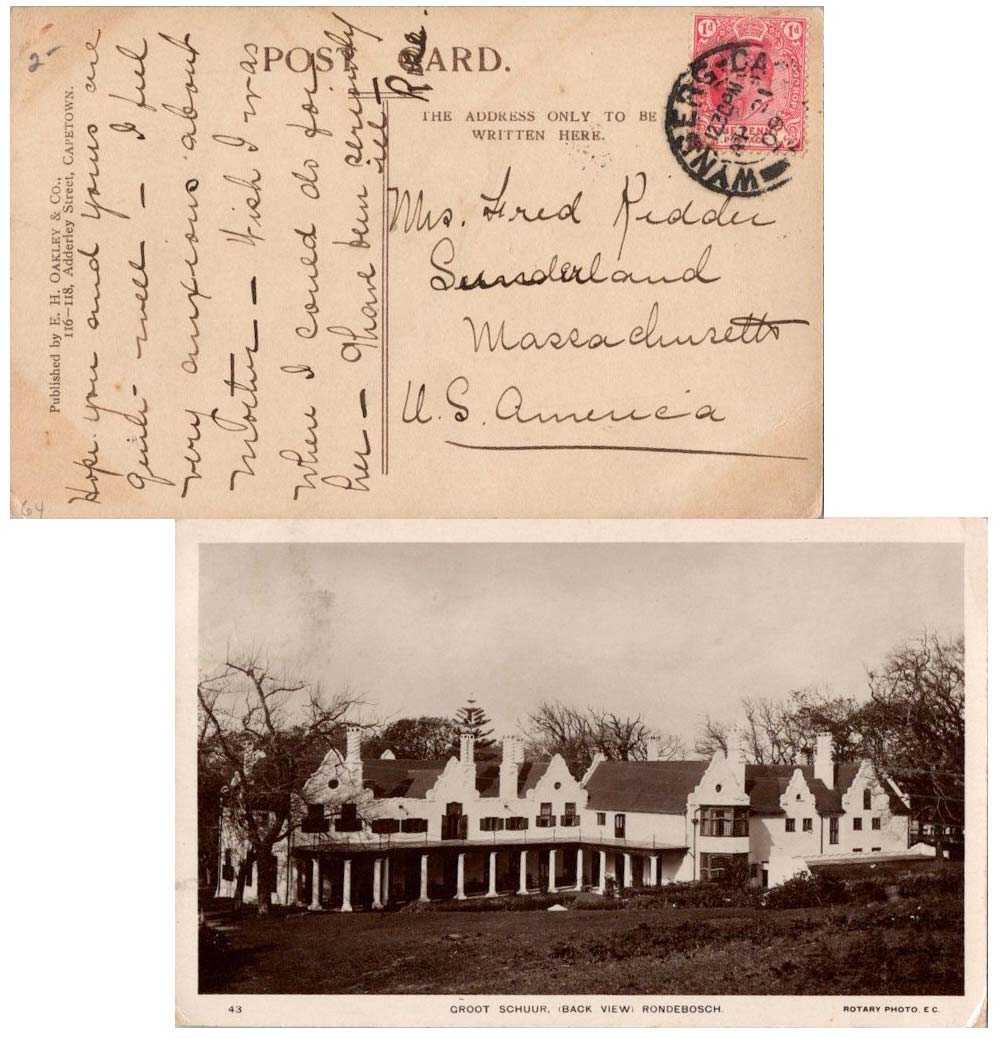 2-
POST CARD.
THE ADDRESS ONLY TO BE
WRITTEN HERE.
1d
1d
WYNBERG
12 30 PM
21
09
Published by E. H. OAKLEY & Co.,
116—118, Adderley Street, CAPETOWN.
Hope you and yours are
quite well — I feel
very anxious about
Mother — Wish I was
where I could do for
her — She have been seriously
ill —
Rose.
Mrs. Fred Kidder
Sunderland
Massachusetts
U.S. America
64
43
GROOT SCHUUR, (BACK VIEW) RONDEBOSCH.
ROTARY PHOTO. E.C.